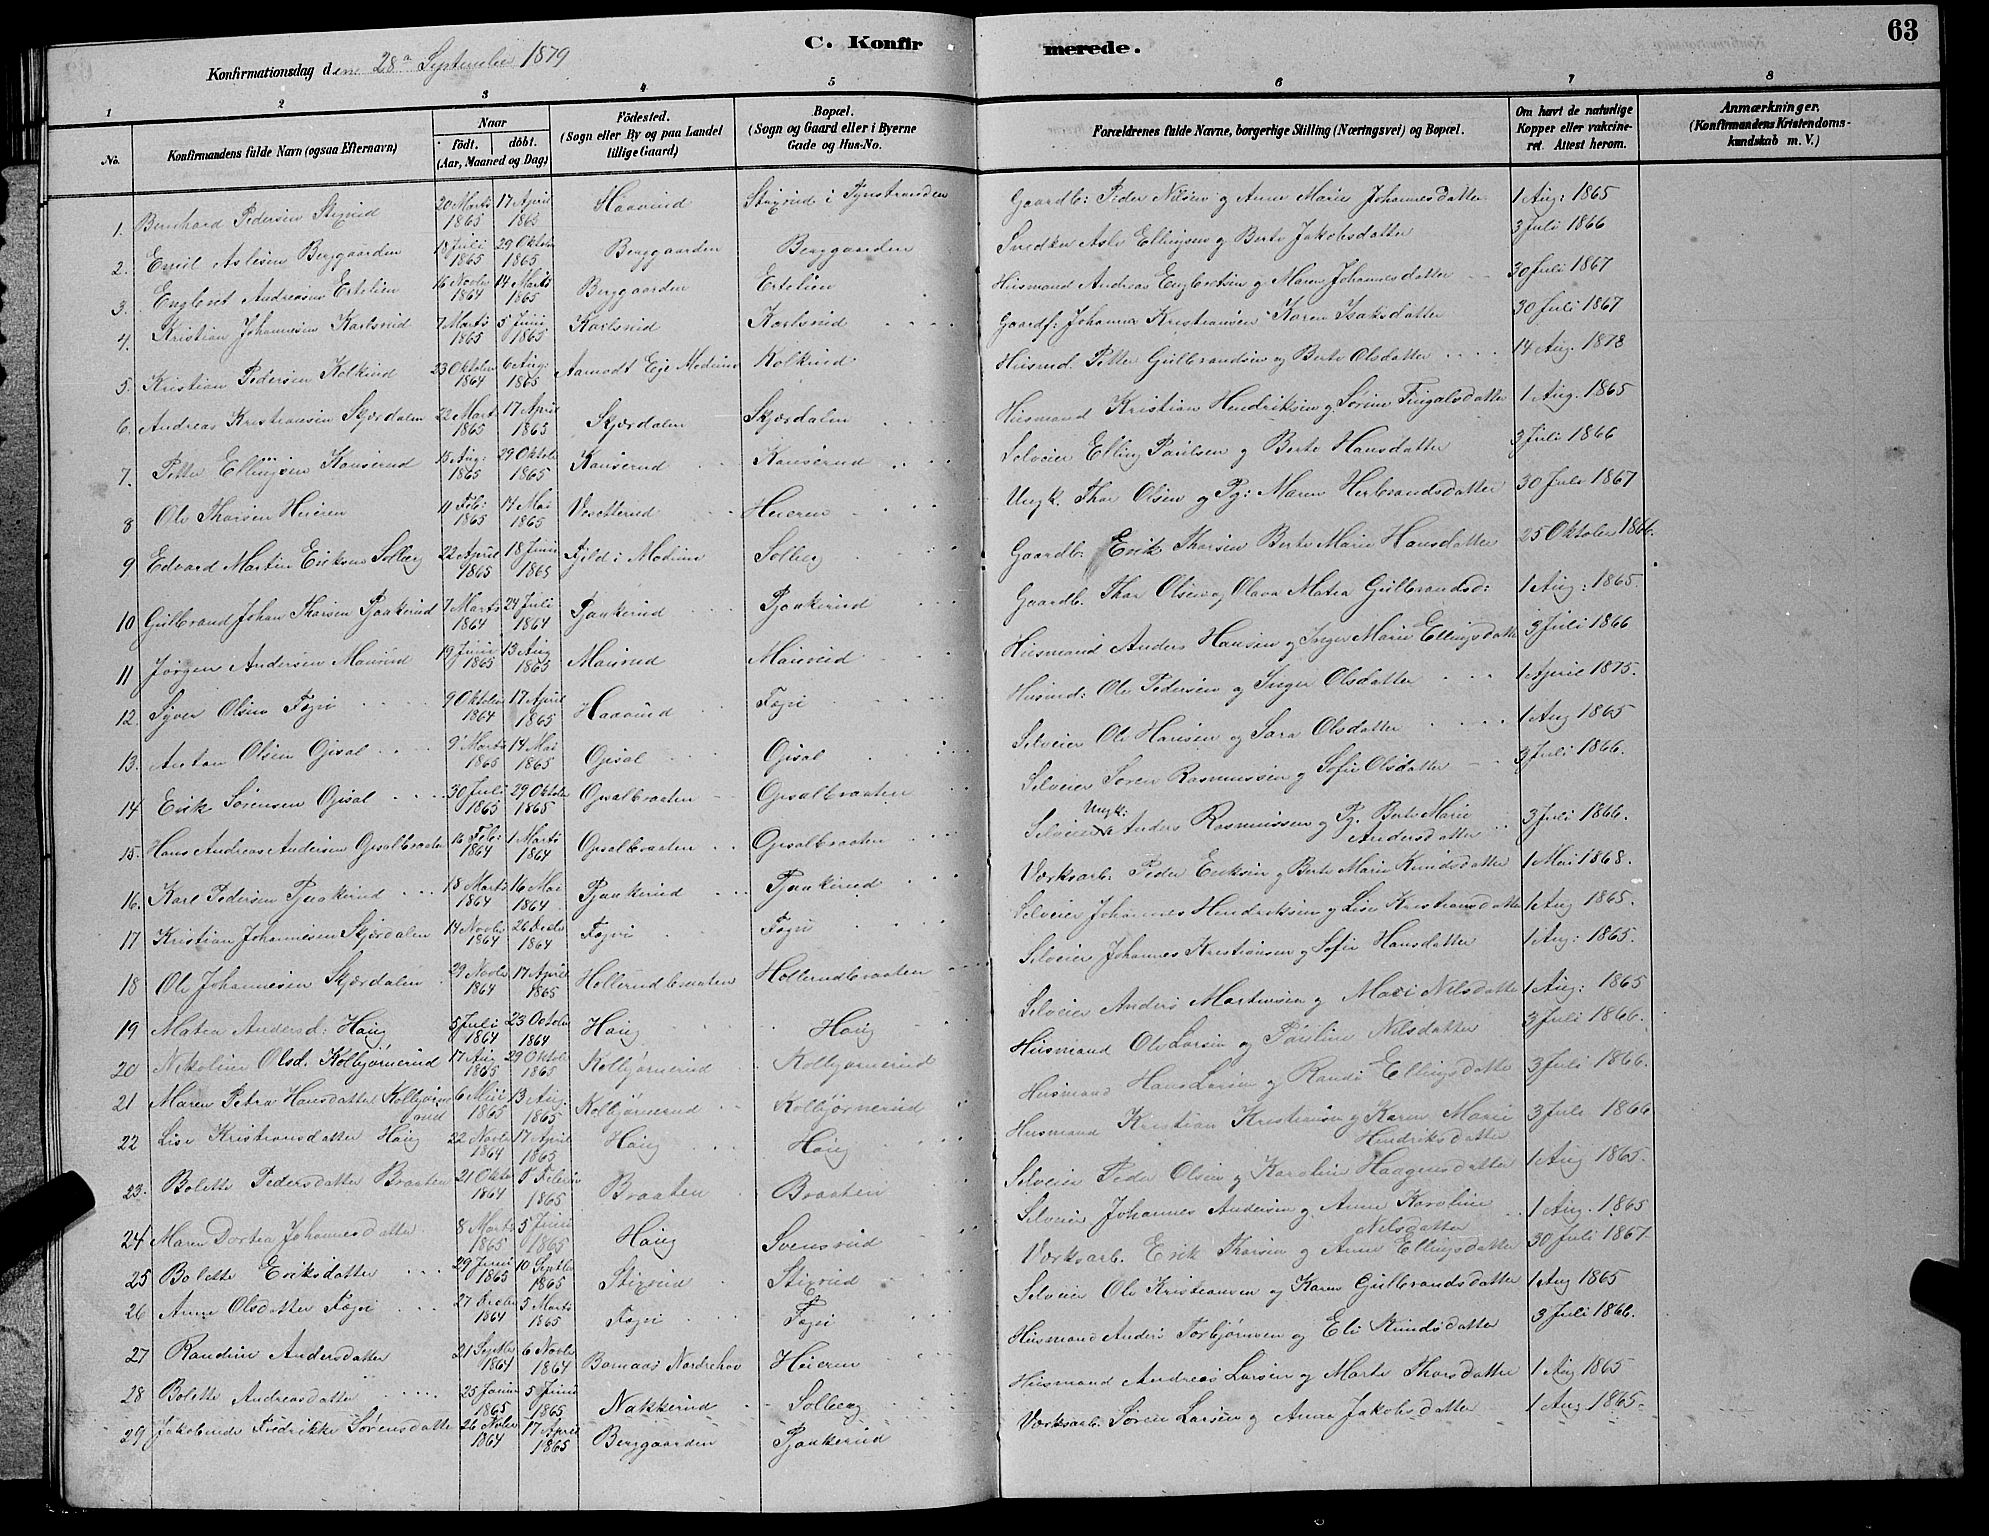 63
C. Konfirmerede.
Konfirmationsdag den 28a September 1879
1 2 3 4 5 6 7 8
No.
Konfirmandens fulde Navn (ogsaa Efternavn)
Naar
födt. döbt.
(Aar, Maaned og Dag)
Födested.
(Sogn eller By og paa Landet
tillige Gaard)
Bopæl.
(Sogn og Gaard eller i Byerne
Gade og Hus-No.
Forældrenes fulde Navne, borgerlige Stilling (Næringsvei) og Bopæl.
Om havt de naturlige
Kopper eller vakcine-
ret. Attest herom.
Anmærkninger.
(Konfirmandens Kristendoms-
kundskab m. V.)
1. Bernhard Pedersen Stixrud 20 Marts 1865 17 April 1865 Haavind Stixrud i Tynstranden Gaardb: Peder Nilsen og Anne Marie Johannesdatter 1 Aug: 1865
2. Emil Aslesen Berggaarden Juli 1865 29 Oktober 1865 Berggaarden Berggaarden Snedker Asle Ellingsen og Berte Jakobsdatter 3 Juli 1866
3. Engbret Andreasen Ertelien 16 Novbr 1864 14 Marts 1865 Berggaarden Ertelien Husmand Andreas Engbretsen og Maren Johannesdatter 30 Juli 1867
4. Kristian Johannesen Karlsrud 7 Marts 1865 5 Juni 1865 Karlsrud Karlsrud Gaardf: Johannes Kristiansen Karen Isaksdatter 30 Juli 1867
5. Kristian Pedersen Kolkind 23 Oktober 1864 6 Aug: 1865 Aamodt Eje Modum Kolkind Husmd. Petter Gulbrandsen og Berte Olsdatter 14 Aug. 1878
6. Andreas Kristiansen Skjærdalen 22 Marts 1865 17 April 1865 Skjærdalen Skjærdalen Husmand Kristian Hendriksen og Sørine Fingalsdatter 1 Aug. 1865
7. Petter Ellingsen Kauserud 15 Aug: 1865 29 Oktober 1865 Kauserud Kauserud Selveier Elling Paulsen og Berte Hansdatter 3 Juli 1866
8 Ole Thorsen Heieren 11 Feb: 1865 14 Mai 1865 Vesetterud Heieren Ungk. Thor Olsen og Pg: Maren Herbrandsdatter 30 Juli 1867
9 Edvard Martin Eriksen Solberg 22 April 1865 18 Juni 1865 Fjeld i Modum Solberg Gaardb. Erik Thorsen Berte Marie Hansdatter 25 Oktober 1866.
10 Gulbrand Johan Thorsen Pjaakerud 7 Marts 1864 24 Juli 1864 Pjaakerud Pjaakerud Gaardb. Thor Olsen og Olava Matea Gulbrandsd: 1 Aug: 1865.
11 Jørgen Andersen Maurud 19 Juni 1865 13 Aug 1865 Maurud Maurud Husmand Anders Hansen og Inger Marie Ellingsdatter 3 Juli 1866
12. Syver Olsen Fægri 9 Oktober 1864 17 April 1865 Haavind Fægri Husmd: Ole Pedersen og Inger Olsdatter 1 April 1875.
13. Anton Olsen Opsal 9 Marts 1865 14 Mai 1865 Opsal Opsal Selveier Ole Hansen og Sara Olsdatter 1 Aug 1865
14 Erik Sørensen Opsal 30 Juli 1865 29 Oktober 1865 Opsalbraaten Opsalbraaten Selveier Soren Rasmussen og Sofie Olsdatter 3 Juli 1866.
15. Hans Andreas Andersen Opsalbraaten 16 Feb: 1864 1 Marts 1864 Opsalbraaten Opsalbraaten Selveier Ungk: Anders Rasmussen og Pg. Berte Marie Andersdatter 3 Juli 1866.
16. Karl Pedersen Pjaakerud 18 Marts 1864 16 Mai 1864 Pjaakerud Pjaakerud Værksarb. Peder Eriksen og Berte Marie Knudsdatter 1 Mai 1868.
17 Kristian Johannesen Skjærdalen 14 Novbr 1864 26 Decbr 1864 Fægri Fægri Selveier Johannes Hendriksen og Lise Kristiansdatter 1 Aug 1865.
18 Ole Johannesen Skjærdalen 29 Novbr 1864 17 April 1865 Hollerudbraaten Hollerudbraaten Selveier Johannes Kristiansen og Sofie Hansdatter 1 Aug: 1865.
19 Matea Andersd: Haug 5 Juli 1864 23 October 1864 Haug Haug Selveier Anders Mortensen og Mari Nilsdatter 1 Aug: 1865
20 Nikoline Olsd. Kolbjørnerud 17 Aug 1865 29 Oktober 1865 Kolbjørnerud Kolbjørnerud Husmand Ole Larsen og Pauline Nilsdatter 3 Juli 1866.
21 Maren Petra Hansdatter Kolbjørnerud 6 Mai 1865 13 Aug. 1865 Kolbjørnerud Kolbjørnerud Husmand Hans Larsen og Randi Ellingsdatter 3 Juli 1866.
22 Lise Kristiansdatter Haug 22 Novbr 1864 17 April 1865 Haug Haug Husmand Kristian Kristiansen og Karen Marie Hendriksdatter 3 Juli 1866
23. Bolette Pedersdatter Braaten 21 Oktbr 1864 Februar 1865 Braaten Braaten Selveier Peder Olsen og Karoline Haagensdatter 1 Aug 1865.
24 Maren Dortea Johannesdatter 8 Marts 1865 5 Juni 1865 Haug Svensrud Selveier Johannes Andersen og Anne Karoline Nilsdatter 1 Aug. 1865
25 Bolette Eriksdatter 29 Juni 1865 10 Septbr 1865 Stixrud Stixrud Værksarb. Erik Thorsen og Anne Ellingsdatter 30 Juli 1867.
26 Anne Olsdatter Fægri 27 Decbr 1864 5 Marts 1865 Fægri Fægri Selveier Ole Kristiansen og Karen Gulbrandsdatter 1 Aug 1865
27 Randine Andersdatter 21 Septbr 1864 6 Novbr 1864 Bamaas Norderhov Heieren Husmand Anders Torbjørnsen og Eli Knudsdatter 3 Juli 1866.
28 Bolette Andreasdatter 25 Januar 1865 5 Juni 1865 Nakkerud Solberg Husmand Andreas Larsen og Marte Thorsdatter 1 Aug 1865
29 Jakobine Fredrikke Sørensdatter 26 Novbr 1864 17 April 1865 Berggaarden Pjaakerud Værksarb. Soren Larsen og Anne Jakobsdatter 1 Aug 1865.